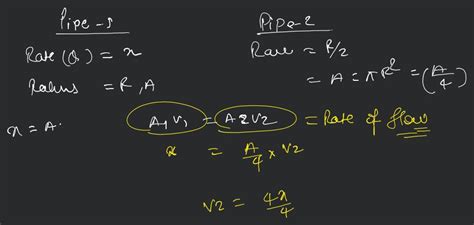 Pipe-1
Rate (Q) = x
Radius = R, A
x = A.
Pipe-2
= R/2
= A = πR² = (A/4)
A₁V₁ = A2V2 = Rate of flow
x = A/4 × V2
V2 = 4x/4